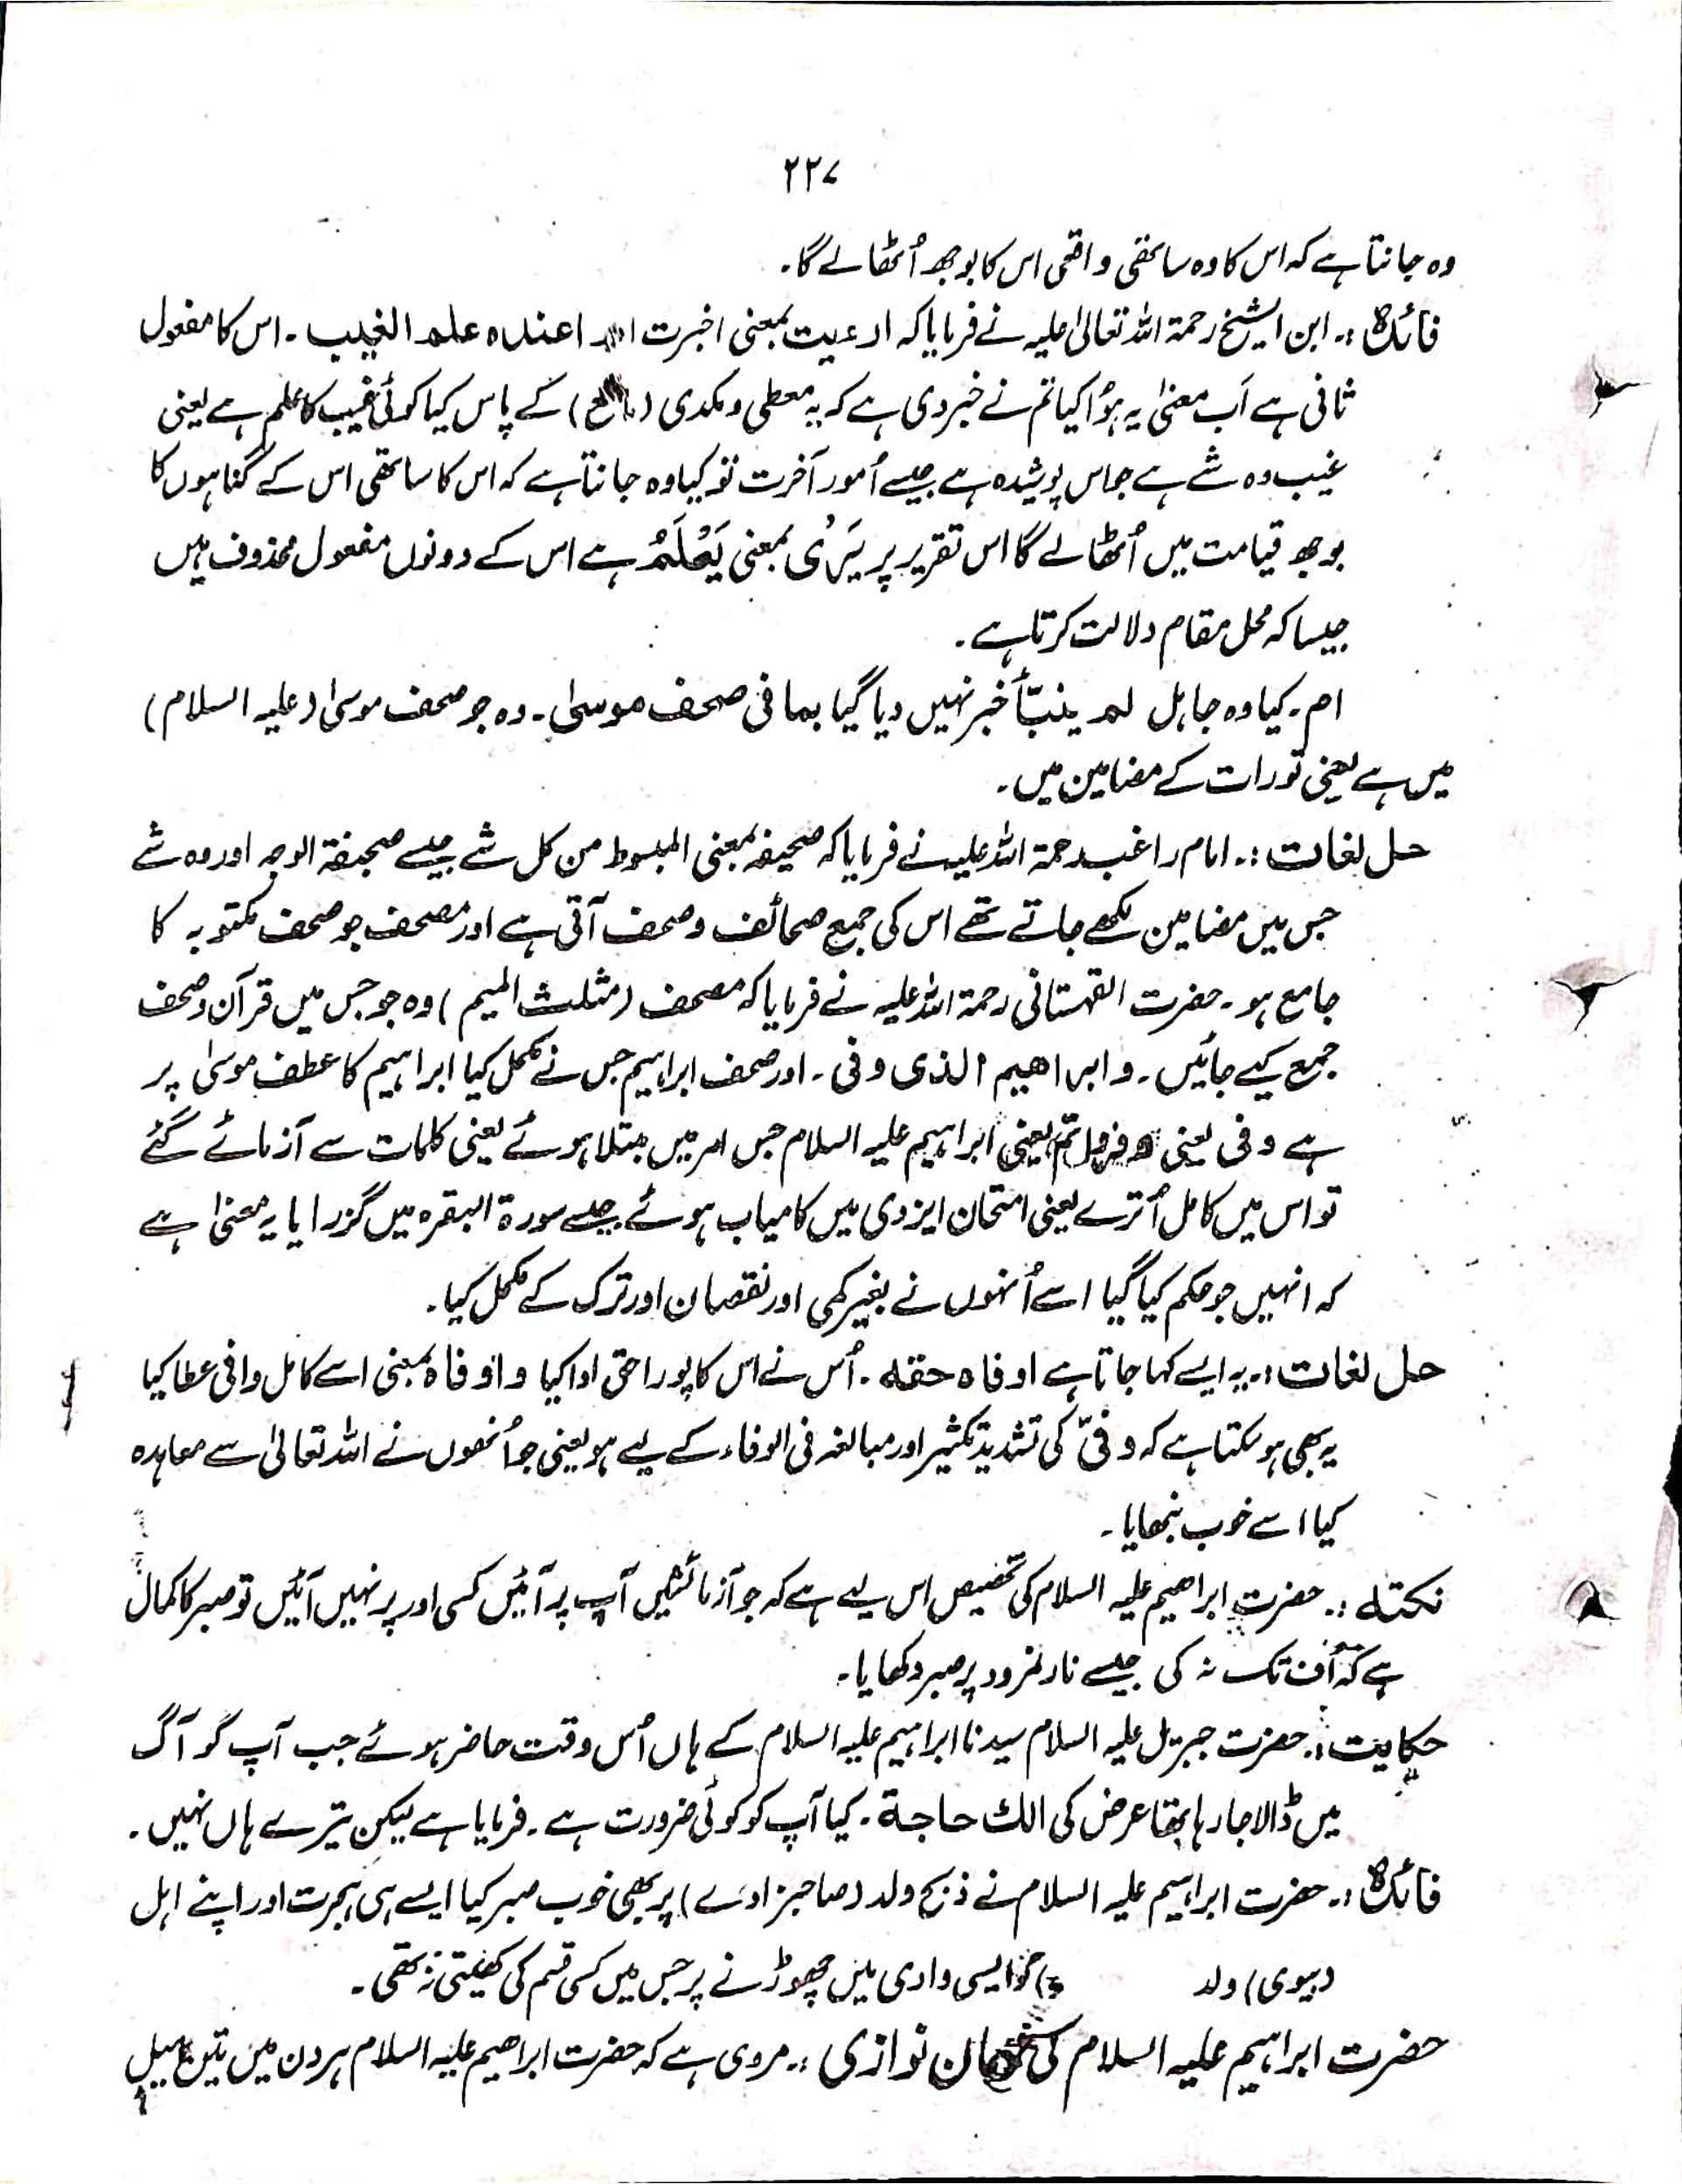 ۲۲۷
وہ جانتا ہے کہ اس کا وہ ساتھی واقعی اس کا بوجھ اُٹھا لے گا۔
فائدہ :۔ ابن الشیخ رحمۃ اللہ تعالیٰ علیہ نے فرمایا کہ ارءیت بمعنی اخبرت اور اعندہ علم الغیب ۔ اس کا مفعول
ثانی ہے اَب معنیٰ یہ ہوُا کیا تم نے خبر دی ہے کہ یہ معطی و مکدی (مانع) کے پاس کیا کوئی غیب کا علم ہے یعنی
غیب وہ شے ہے جو اس پوشیدہ ہے جیسے اُمور آخرت تو کیا وہ جانتا ہے کہ اس کا ساتھی اس کے گناہوں کا
بوجھ قیامت میں اُٹھا لے گا اس تقریر پر یَرٰی بمعنی یَعْلَمُ ہے اس کے دونوں مفعول محذوف ہیں
جیسا کہ محل مقام دلالت کرتا ہے ۔
ام ۔ کیا وہ جاہل لم ینبّأ خبر نہیں دیا گیا بما فی صحف موسیٰ ۔ وہ جو صحف موسیٰ (علیہ السلام)
میں ہے یعنی تورات کے مضامین میں ۔
حل لغات :۔ امام راغب رحمۃ اللہ علیہ نے فرمایا کہ صحیفہ بمعنی المبسوط من کل شے جیسے صحیفۃ الوجہ اور وہ شے
جس میں مضامین لکھے جاتے تھے اس کی جمع صحائف و صحف آتی ہے اور مصحف جو صحف مکتوبہ کا
جامع ہو ۔ حضرت القہستانی رحمۃ اللہ علیہ نے فرمایا کہ مصحف (مثلث المیم) وہ جو جس میں قرآن و صحف
جمع کیے جائیں ۔ و ابراھیم الذی وفی ۔ اور صحف ابراہیم جس نے مکمل کیا ابراہیم کا عطف موسیٰ پر
ہے وفی یعنی یعنی ابراہیم علیہ السلام جس امر میں مبتلا ہوئے یعنی کلمات سے آزمائے گئے
تو اس میں کامل اُترے یعنی امتحان ایزدی میں کامیاب ہوئے جیسے سورۃ البقرہ میں گزرا یا یہ معنیٰ ہے
کہ انہیں جو حکم کیا گیا اسے اُنہوں نے بغیر کمی اور نقصان اور ترک کے مکمل کیا ۔
حل لغات :۔ یہ ایسے کہا جاتا ہے اوفاہ حقہ ۔ اُس نے اس کا پورا حق ادا کیا و اوفاہ بمعنی اسے کامل وافی عطا کیا
یہ بھی ہو سکتا ہے کہ وفیّ کی تشدید تکثیر اور مبالغہ فی الوفاء کے لیے ہو یعنی جو اُنھوں نے اللہ تعالیٰ سے معاہدہ
کیا اسے خوب نبھایا ۔
نکتہ :۔ حضرت ابراھیم علیہ السلام کی تخصیص اس لیے ہے کہ جو آزمائشیں آپ پر آئیں کسی اور پر نہیں آئیں تو صبر کا کمال
ہے کہ اُف تک نہ کی جیسے نار نمرود پر صبر دکھایا ۔
حکایت :۔ حضرت جبریل علیہ السلام سیدنا ابراہیم علیہ السلام کے ہاں اُس وقت حاضر ہوئے جب آپ کو آگ
میں ڈالا جا رہا تھا عرض کی الک حاجة ۔ کیا آپ کو کوئی ضرورت ہے ۔ فرمایا ہے لیکن تیرے ہاں نہیں ۔
فائدہ :۔ حضرت ابراہیم علیہ السلام نے ذبح ولد (صاحبزادے) پر بھی خوب صبر کیا ایسے ہی ہجرت اور اپنے اہل
(بیوی) ولد کو ایسی وادی میں چھوڑنے پر جس میں کسی قسم کی کھیتی نہ تھی ۔
حضرت ابراہیم علیہ السلام کی مہمان نوازی :۔ مروی ہے کہ حضرت ابراھیم علیہ السلام ہر دن میں تین میل